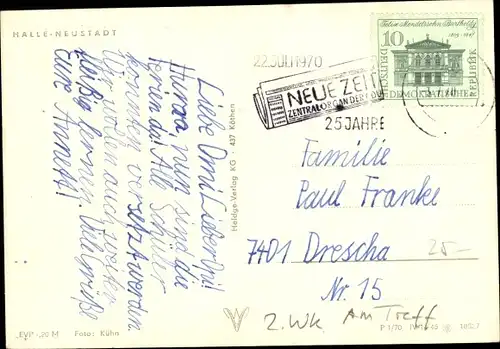 HALLE-NEUSTADT
Liebe Omi! Lieber Opi!
Hurra, nun sind die
Ferien da! Alle Schüler
konnten versetzt werden.
Wir werden auch weiter
fleißig lernen. Viele Grüße
eure Annett!
"EVP" -,20 M Foto: Kühn
Heldge-Verlag KG 437 Köthen
22.JULI1970
NEUE ZEIT
ZENTRALORGAN DER CDU
25 JAHRE
Felix Mendelssohn Bartholdy
1809-1847
10
DEUTSCHE
DEMOKRATISCHE
REPUBLIK
Familie
Paul Franke
7401 Drescha
Nr. 15
25-
2. WK Am Treff
P 1/70